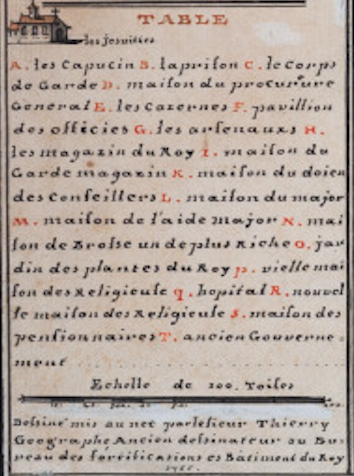 TABLE
les jesuittes
A. les Capucin B. la prison C. le Corps
de Garde D. maison du procureure
General E. les Cazernes F. pavillion
des officies G. les arsenaux H.
les magazin du Roy I. maison du
Garde magazin K. maison du doien
des Conseillers L. maison du major
M. maison de l'aide major N. mai
son de Brosse un de plus Riche O. jar
din des plantes du Roy p. vielle mai
son des Religieuse q. hopital R. nouvel
le maison des Religieuse S. maison des
pensionnaires T. ancien Gouverne=
ment
Echelle de 200. Toises
Dessiné mis au net par lesieur Thierry
Geographe Ancien dessinateur au Bu=
reau des fortifications es Bâtiment du Roy